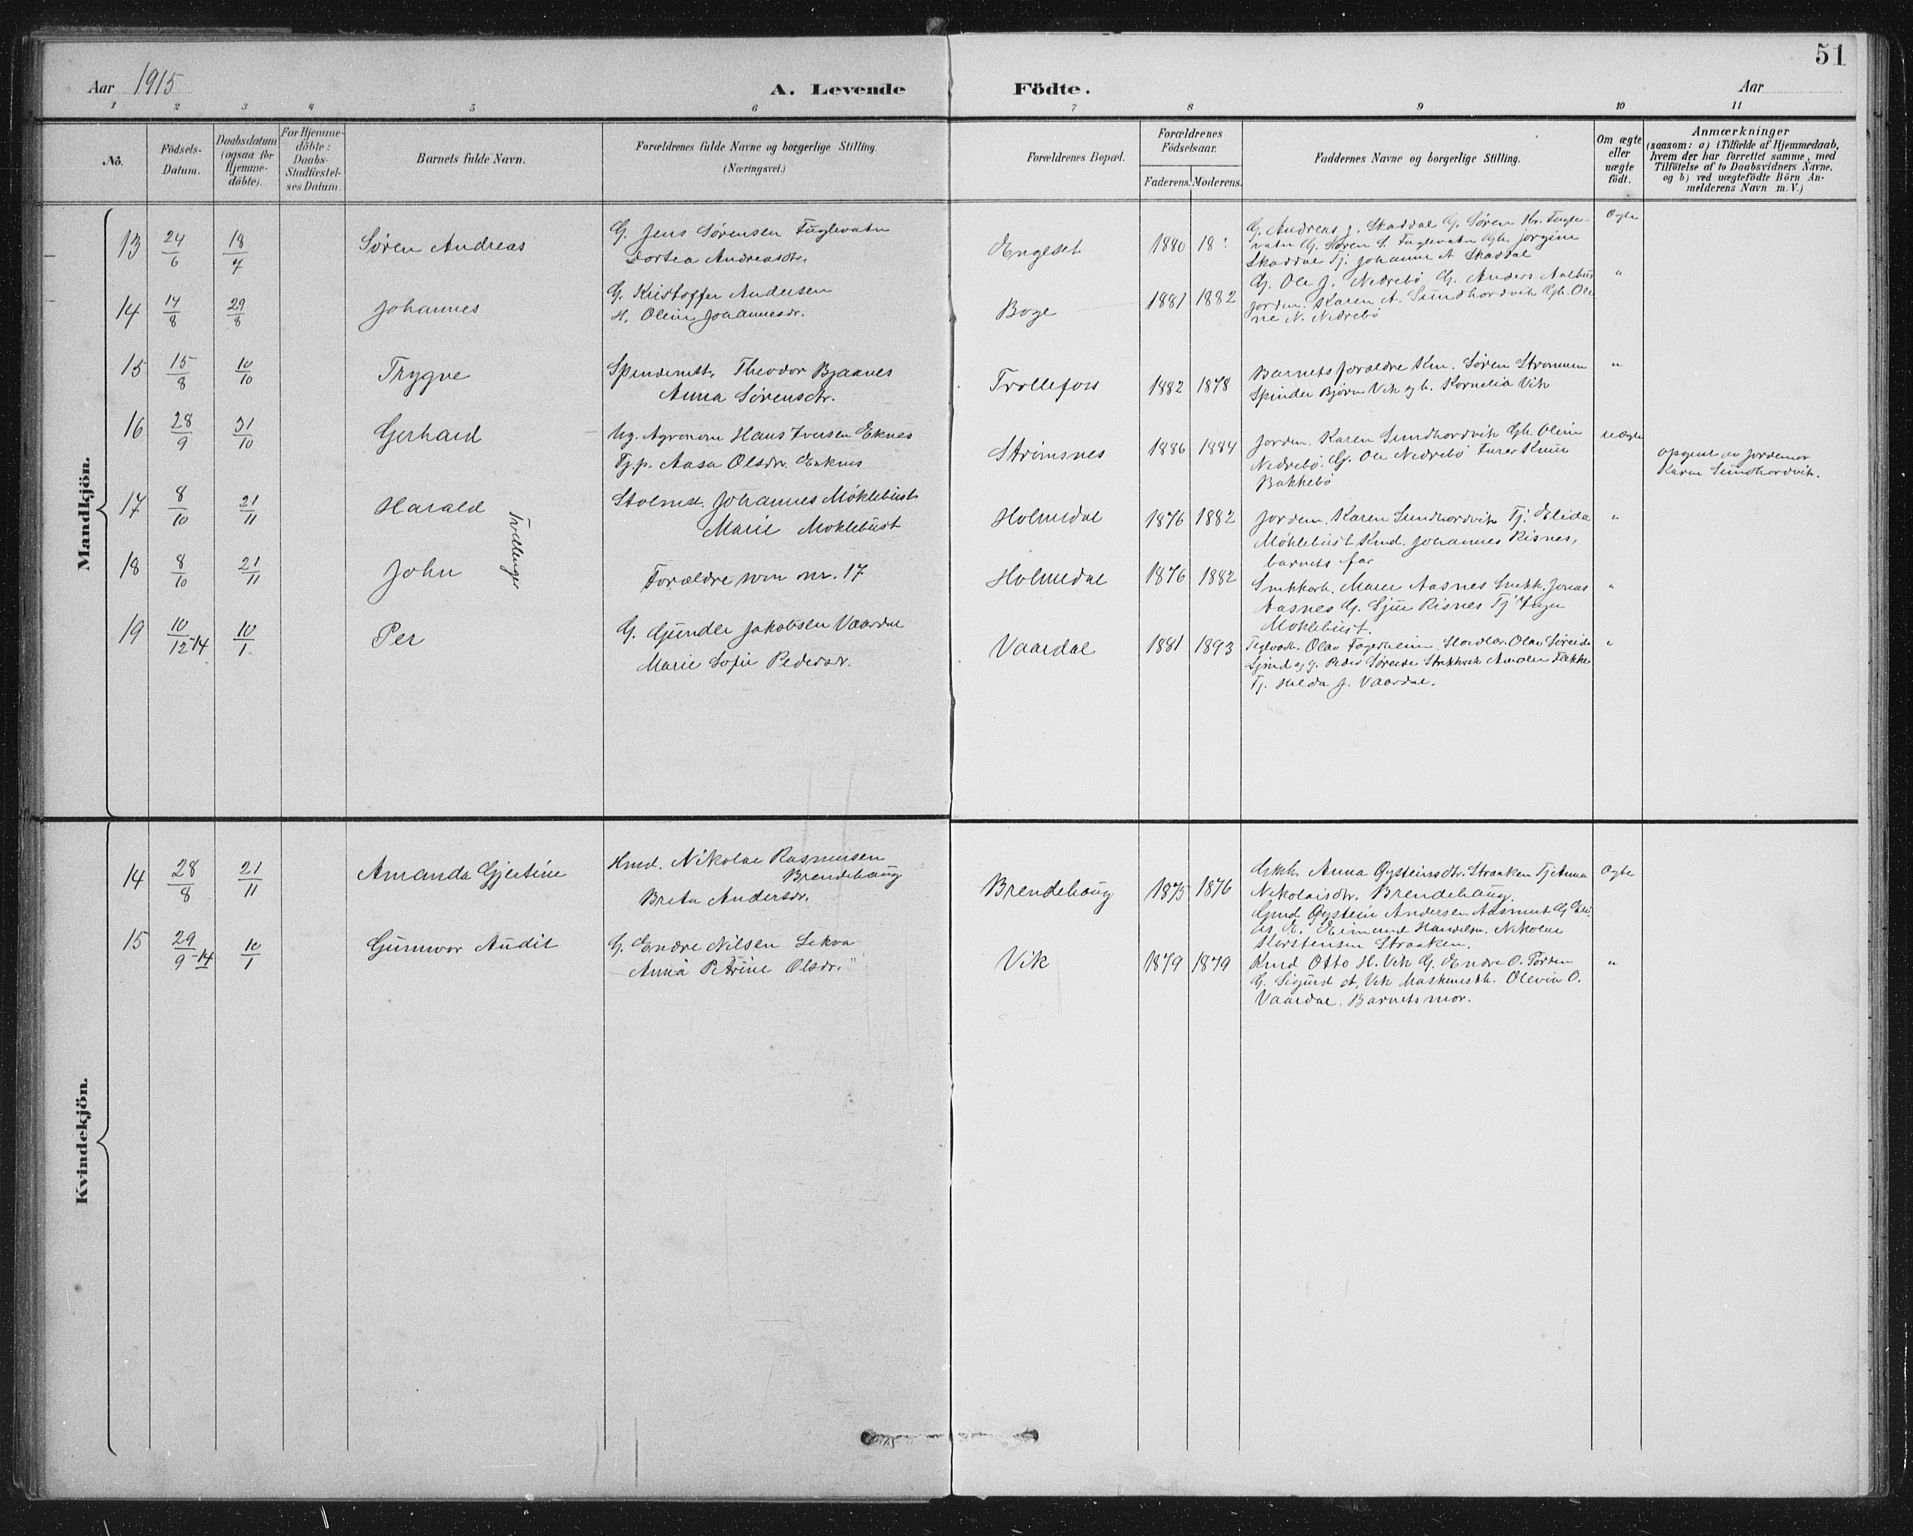 51
Aar 1915
A. Levende Födte.
Aar
1 2 3 4 5 6 7 8 9 10 11
No.
Födsels-
Datum.
Daabsdatum
(ogsaa for
Hjemme-
döbte).
For Hjemme-
döbte:
Daabs-
Stadfæstel-
ses Datum.
Barnets fulde Navn.
Forældrenes fulde Navne og borgerlige Stilling.
(Næringsvei.)
Forældrenes Bopæl.
Forældrenes
Födselsaar.
Faderens. Moderens.
Faddernes Navne og borgerlige Stilling.
Om ægte
eller
uægte
födt.
Anmærkninger
(saasom: a) i Tilfælde af Hjemmedaab,
hvem der har forrettet samme, med
Tilföielse af to Daabsvidners Navne.
og b) ved uægtefödte Börn An-
melderens Navn m. V.)
Mandkjön.
13 24/6 18/7 Søren Andreas
G. Jens Sørensen Fuglevatn
Dortea Andreasdtr.
Engeset 1880 18
G. Andreas J. Skaddal G. Søren Kr. Fugle-
vatn G. Søren S. Fuglevatn Gh. Jorgine
Skaddal Tj. Johanne A Skaddal
Ægte
14 14/8 29/8 Johannes
G. Kristoffer Andersen
H. Oline Johannesdr.
Boge 1881 1882
G. Ole J. Nedrebö G. Anders
Jordem. Karen A. Sundhordvik Gh. Ole
ne N. Nedrebö
"
15 15/8 10/10 Trygve
Spinderiet. Theodor Bjaanes
Anna Sørensdtr.
Trollefoss 1882 1878
Barnets forældre Km. Søren Strommen
Spinder Bjørn Vik og h. Kornelia Vik
"
16 28/9 31/10 Gerhard
Ug. Agronom Hans Iversen Eknes
Tj.p. Aasa Olsdr. Eknes
Strømsnes 1886 1884
Jordem. Karen Sundhordvik Gh. Oline
Nedrebö. G. Ole Nedrebö
Bakkebö
uægte
opgivet av jordemor
Karen Sundhordvik.
17 8/10 21/11 Harald
Tvillinger
Johannes Møklebust
Marie Moklebust
Holmedal 1876 1882
Jordem. Karen Sundhordvik Tj. Elida
Møklebust Kmd. Johannes Risnes,
barnets far
"
18 8/10 21/11 John
Forældre som nr. 17
Holmedal 1876 1882
Snekkerh. Marie Aasnes Snekk. Jonas
Aasnes G. Sjur Risnes Tj. Inger
Moklebust.
"
19 10/12-14 10/1 Per
G. Gunder Jakobsen Vaardal
Marie Sofie Pedersdr.
Vaardal 1881 1893
Olav Fagerheim Olav Søreide
Peder Søreide
Tj. Hilda J. Vaardal.
"
Kvindekjön.
14 28/8 21/11 Amanda Gjertine
Hmd. Nikolai Rasmussen
Brendehaug
Brita Andersdr.
Brendehaug 1875 1876
Anna Øysteinsdtr. Straaken Tj Anna
Nikolaisdtr. Brendehaug.
Gmd Øystein Andersen Aasmut G Eli
as E. Eimund Handelsm. Nikolai
Karstensen Straaken.
Ægte
15 29/9-14 10/1 Gunvor Audit
G. Endre Nilsen Lekva
Anna Petrine Olsdr. "
Vik 1879 1879
Kmd Otto H. Vik G. Endre O.
G. Sigurd A. Vik Maskinisth. Olevia O.
Vaardal. Barnets mor.
"